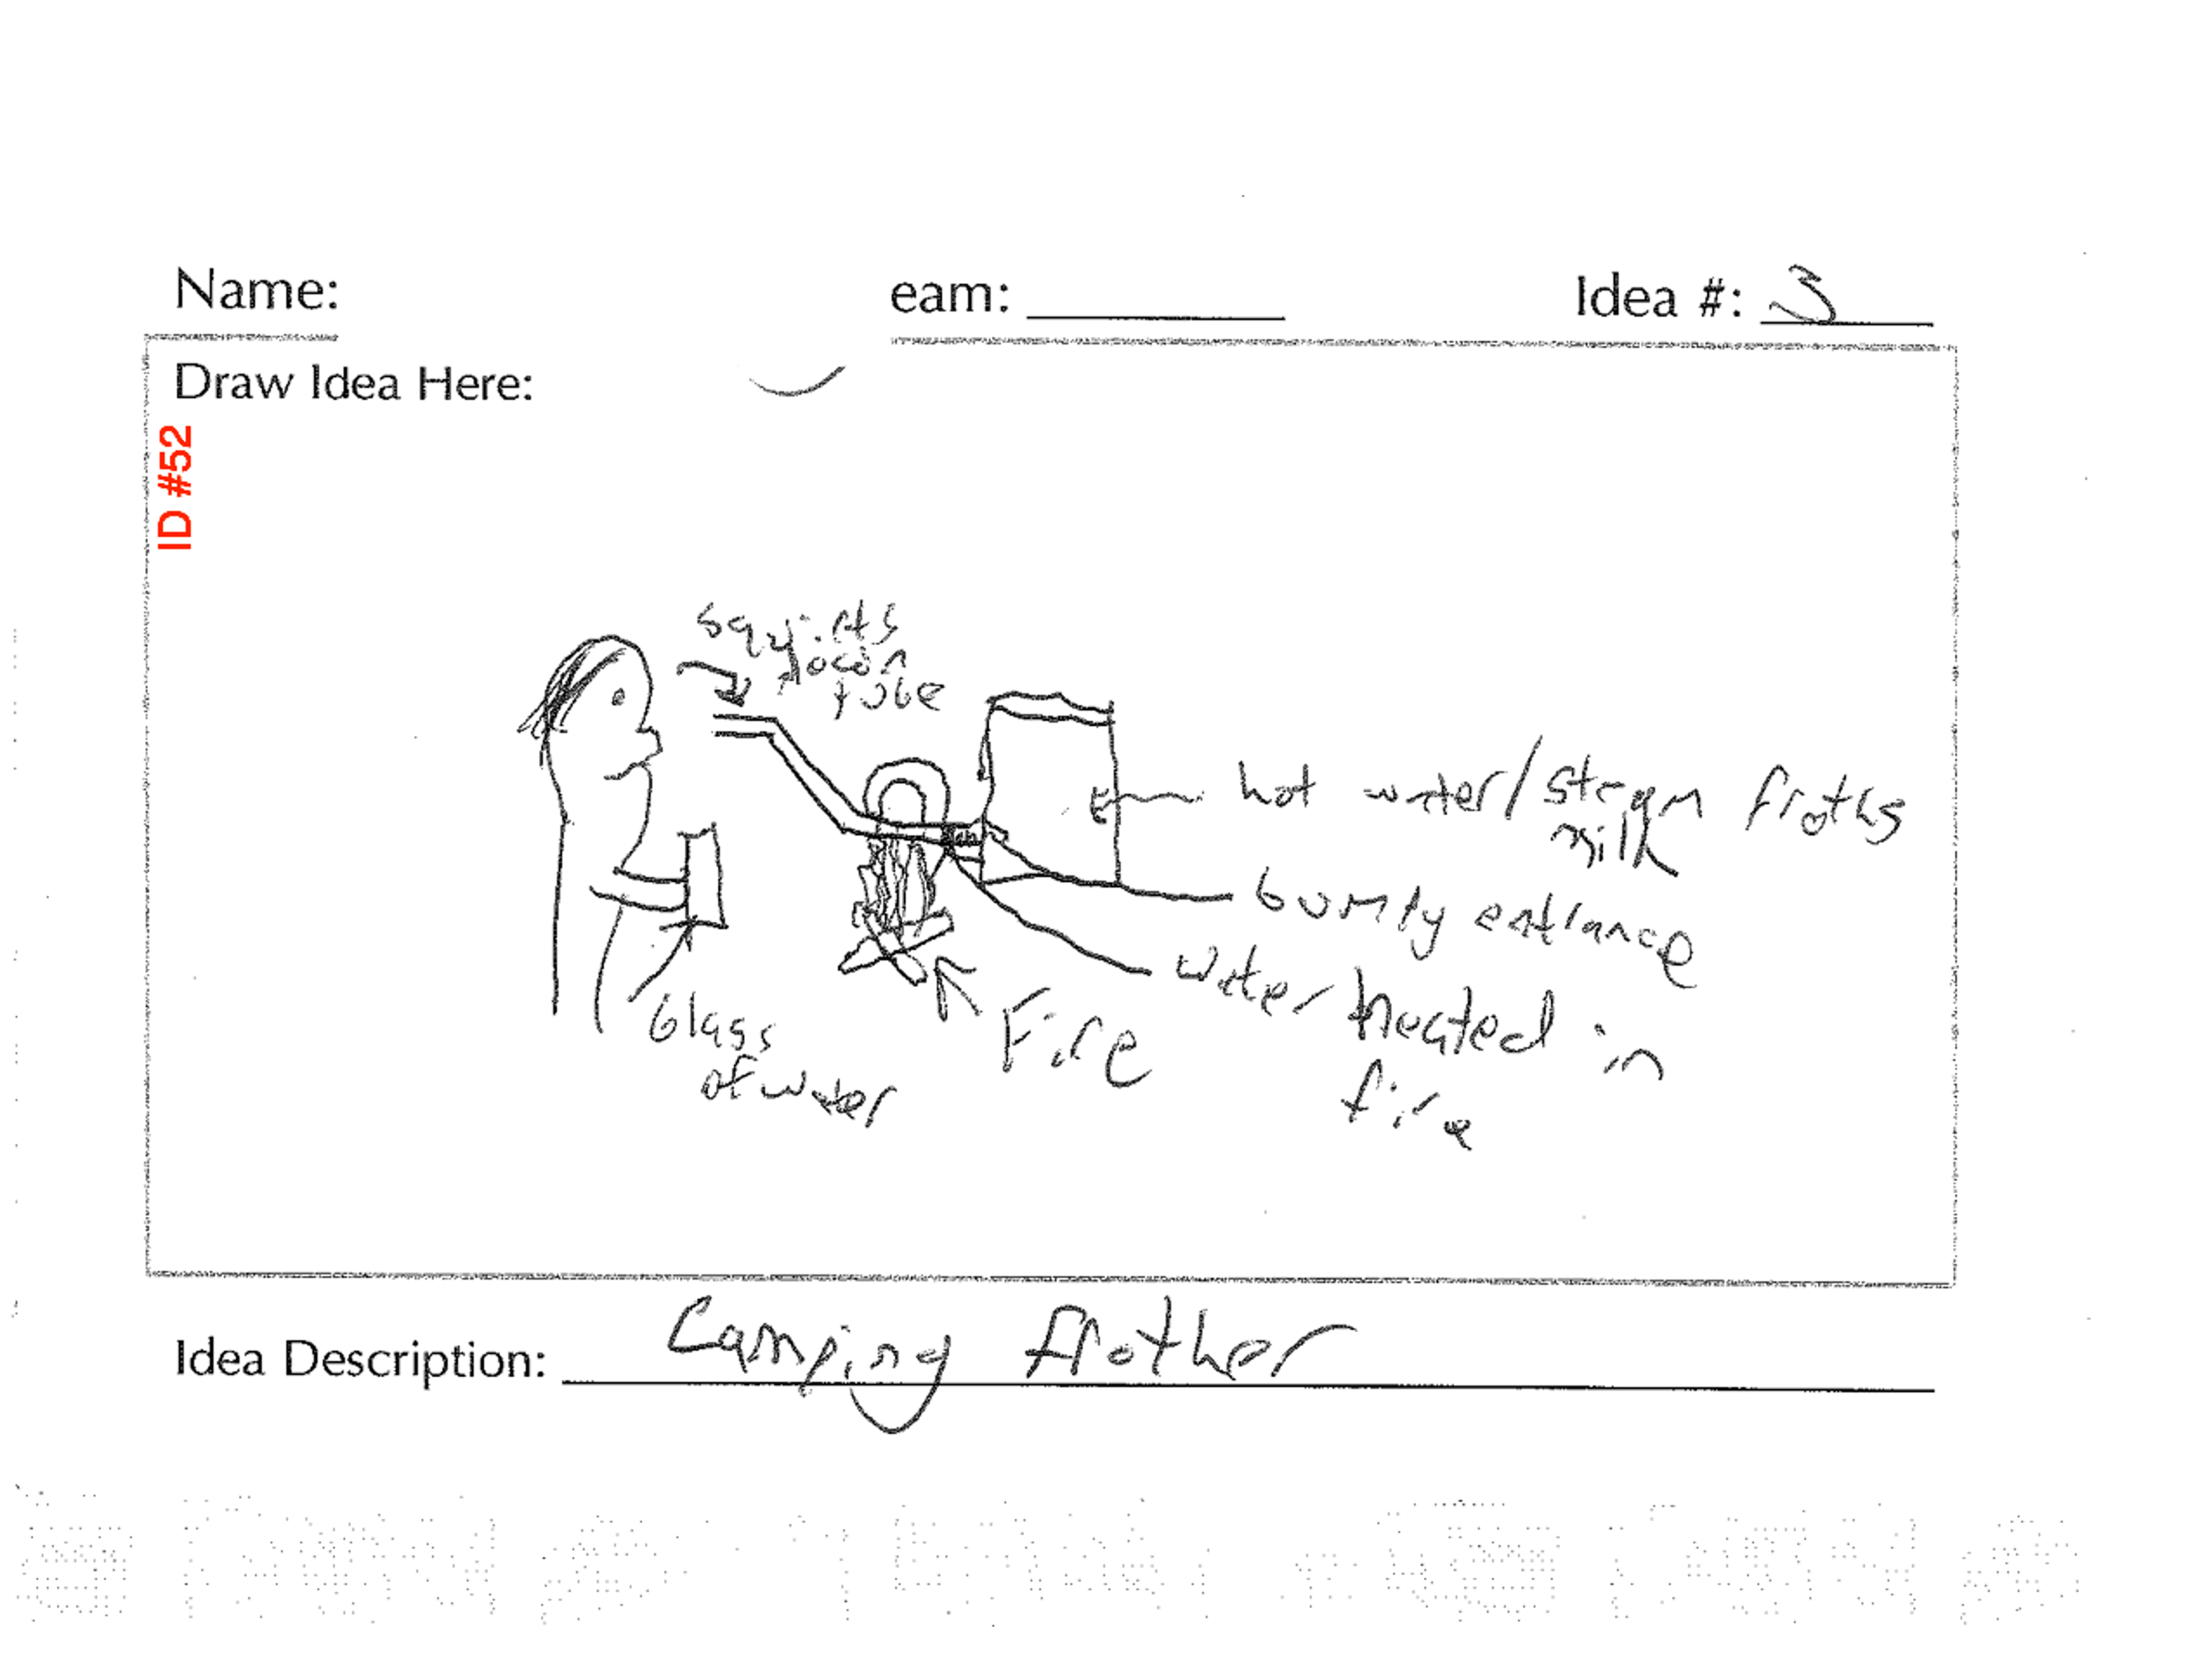 Name:
eam:
Idea #: 3
Draw Idea Here:
ID #52
squirts
down
tube
hot water/steam froths
milk
bumpy entrance
water heated in
fire
Fire
Glass
of water
Idea Description: Camping frother